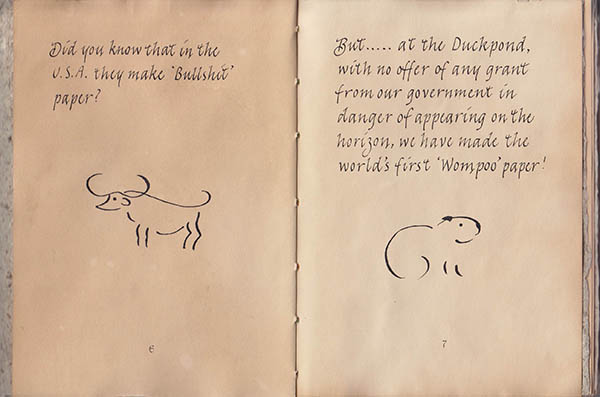 Did you know that in the
U.S.A. they make 'Bullshit'
paper?
6
But..... at the Duckpond,
with no offer of any grant
from our government in
danger of appearing on the
horizon, we have made the
world's first 'Wompoo' paper!
7